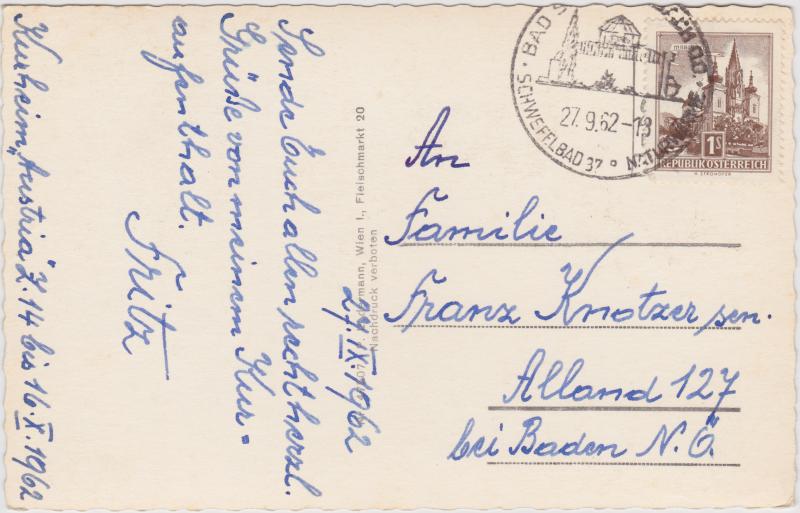 27. IX. 1962
Sende Euch allen recht herzl.
Grüße von meinem Kur=
aufenthalt.
Fritz
Kurheim „Austria" Z. 14 bis 16. X. 1962
Wien I., Fleischmarkt 20
Nachdruck verboten
BAD
SCHWEFELBAD 37°
27. 9. 62-18
1S
REPUBLIK ÖSTERREICH
An
Familie
Franz Knotzer sen.
Alland 127
bei Baden N.Ö.